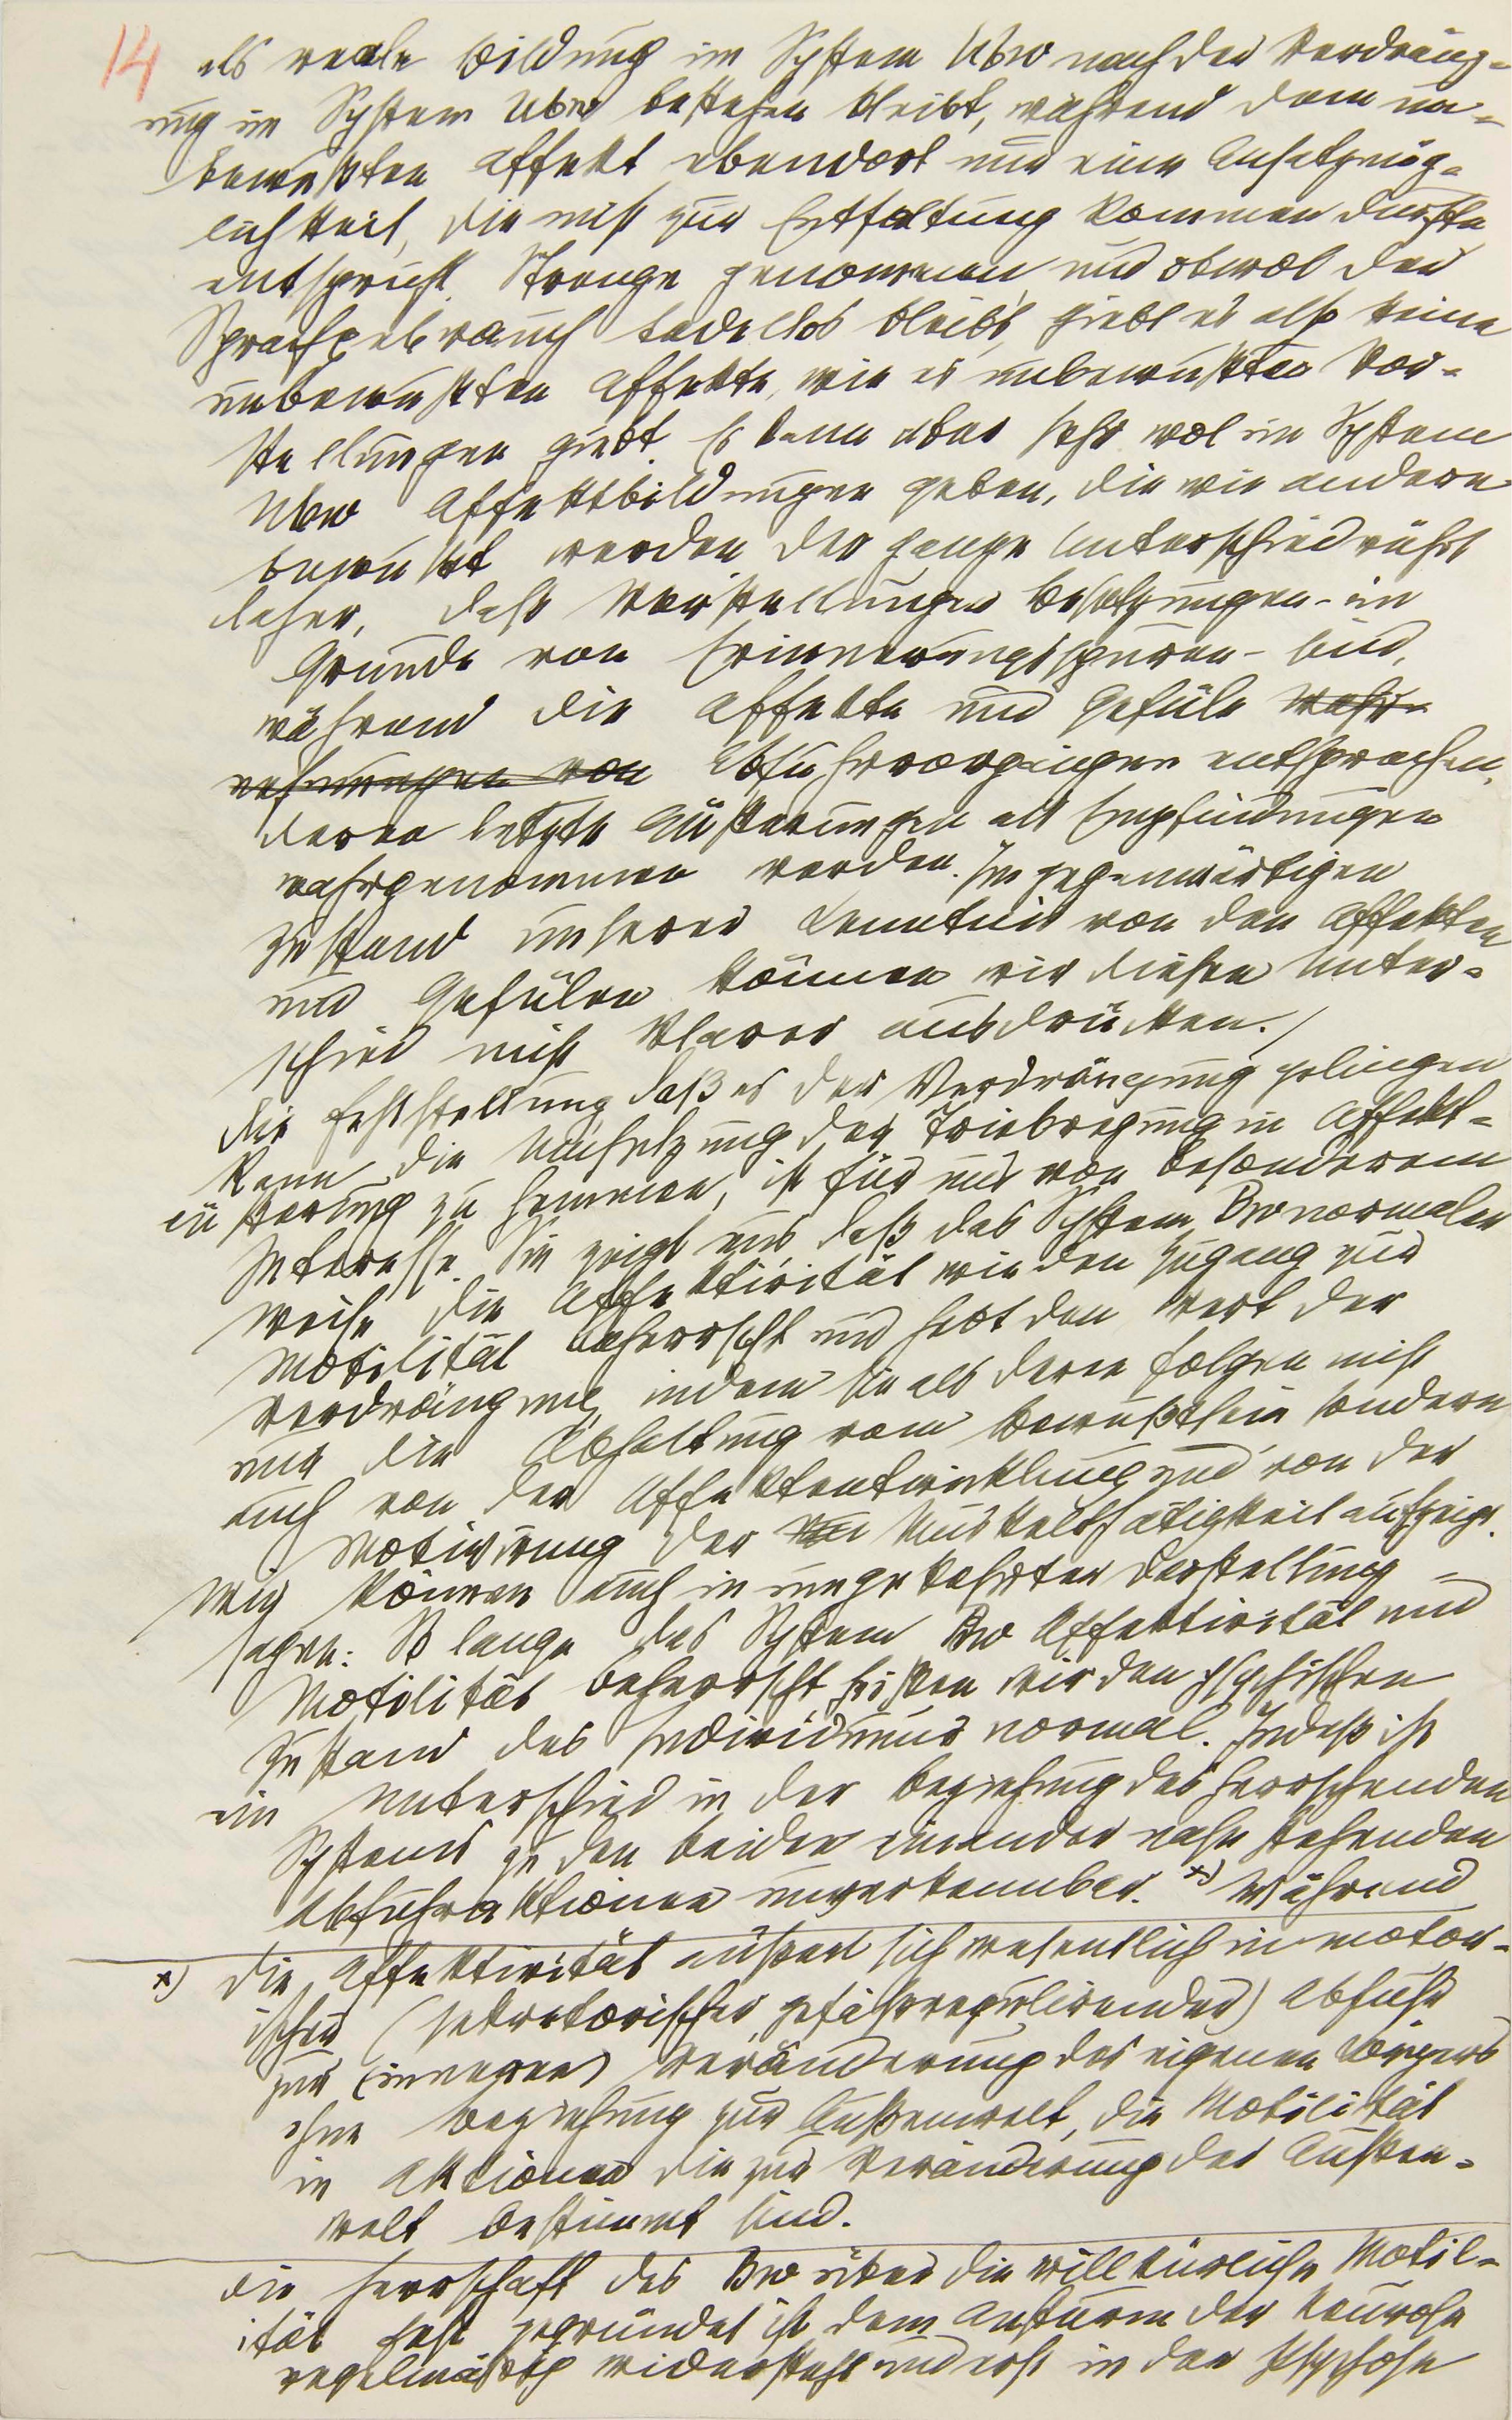 14 als reale Bildung im System Ubw nach der Verdräng-
ung im System Ubw bestehen bleibt, während dem un-
bewußten Affekt ebendort nur eine Ansatzmög-
lichkeit, die nicht zur Entfaltung kommen durfte
entspricht. Strenge genommen und obwol der
Sprachgebrauch tadellos bleibt, giebt es also keine
unbewußten Affekte, wie es unbewußte Vor-
stellungen giebt. Es kann aber sehr wol im System
Ubw Affektbildungen geben, die wie andere
bewußt werden. Der ganze Unterschied rührt
daher, daß Vorstellungen Besetzungen – im
Grunde von Erinnerungsspuren – sind,
während die Affekte und Gefüle Wahr-
nehmungen von Abfuhrvorgängen entsprechen,
deren letzte Äußerungen als Empfindungen
wahrgenommen werden. Im gegenwärtigen
Zustand unserer Kenntnis von den Affekten
und Gefülen können wir diesen Unter-
schied nicht klarer ausdrücken. /
Die Feststellung daß es der Verdrängung gelingen
kann die Umsetzung der Triebregung in Affekt-
äußerung zu hemmen, ist für uns von besonderem
Interesse. Sie zeigt uns, daß das System Bw normaler
Weise die Affektivität wie den Zugang zur
Motilität beherrscht und hebt den Wert der
Verdrängung, indem sie als deren Folgen nicht
nur die Abhaltung vom Bewußtsein sondern
auch von der Affektentwicklung und von der
Motivirung der Muskelthätigkeit aufzeigt.
Wir können auch in umgekehrter Darstellung
sagen: So lange das System Bw Affektivität und
Motilität beherrscht heißen wir den psychischen
Zustand des Individuums normal. Indeß ist
ein Unterschied in der Beziehung des herrschenden
Systems zu den beiden einander nahe stehenden
Abfuhraktionen unverkennbar. x) Während
x) Die Affektivität äußert sich wesentlich in motor-
ischer (sekretorischer, gefäßregulirender) Abfuhr
zur (inneren) Veränderung des eigenen Körpers
ohne Beziehung zur Außenwelt, die Motilität
in Aktionen die zur Veränderung der Außen-
welt bestimmt sind.
die Herrschaft des Bw über die willkürliche Motil-
ität fest gegründet ist dem Ansturm der Neurose
regelmäßig widersteht und erst in der Psychose